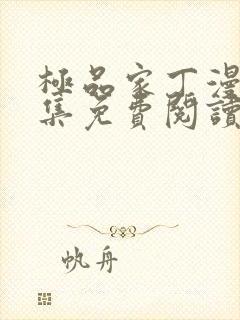 極品家丁漫
集免費閱讀
帆舟